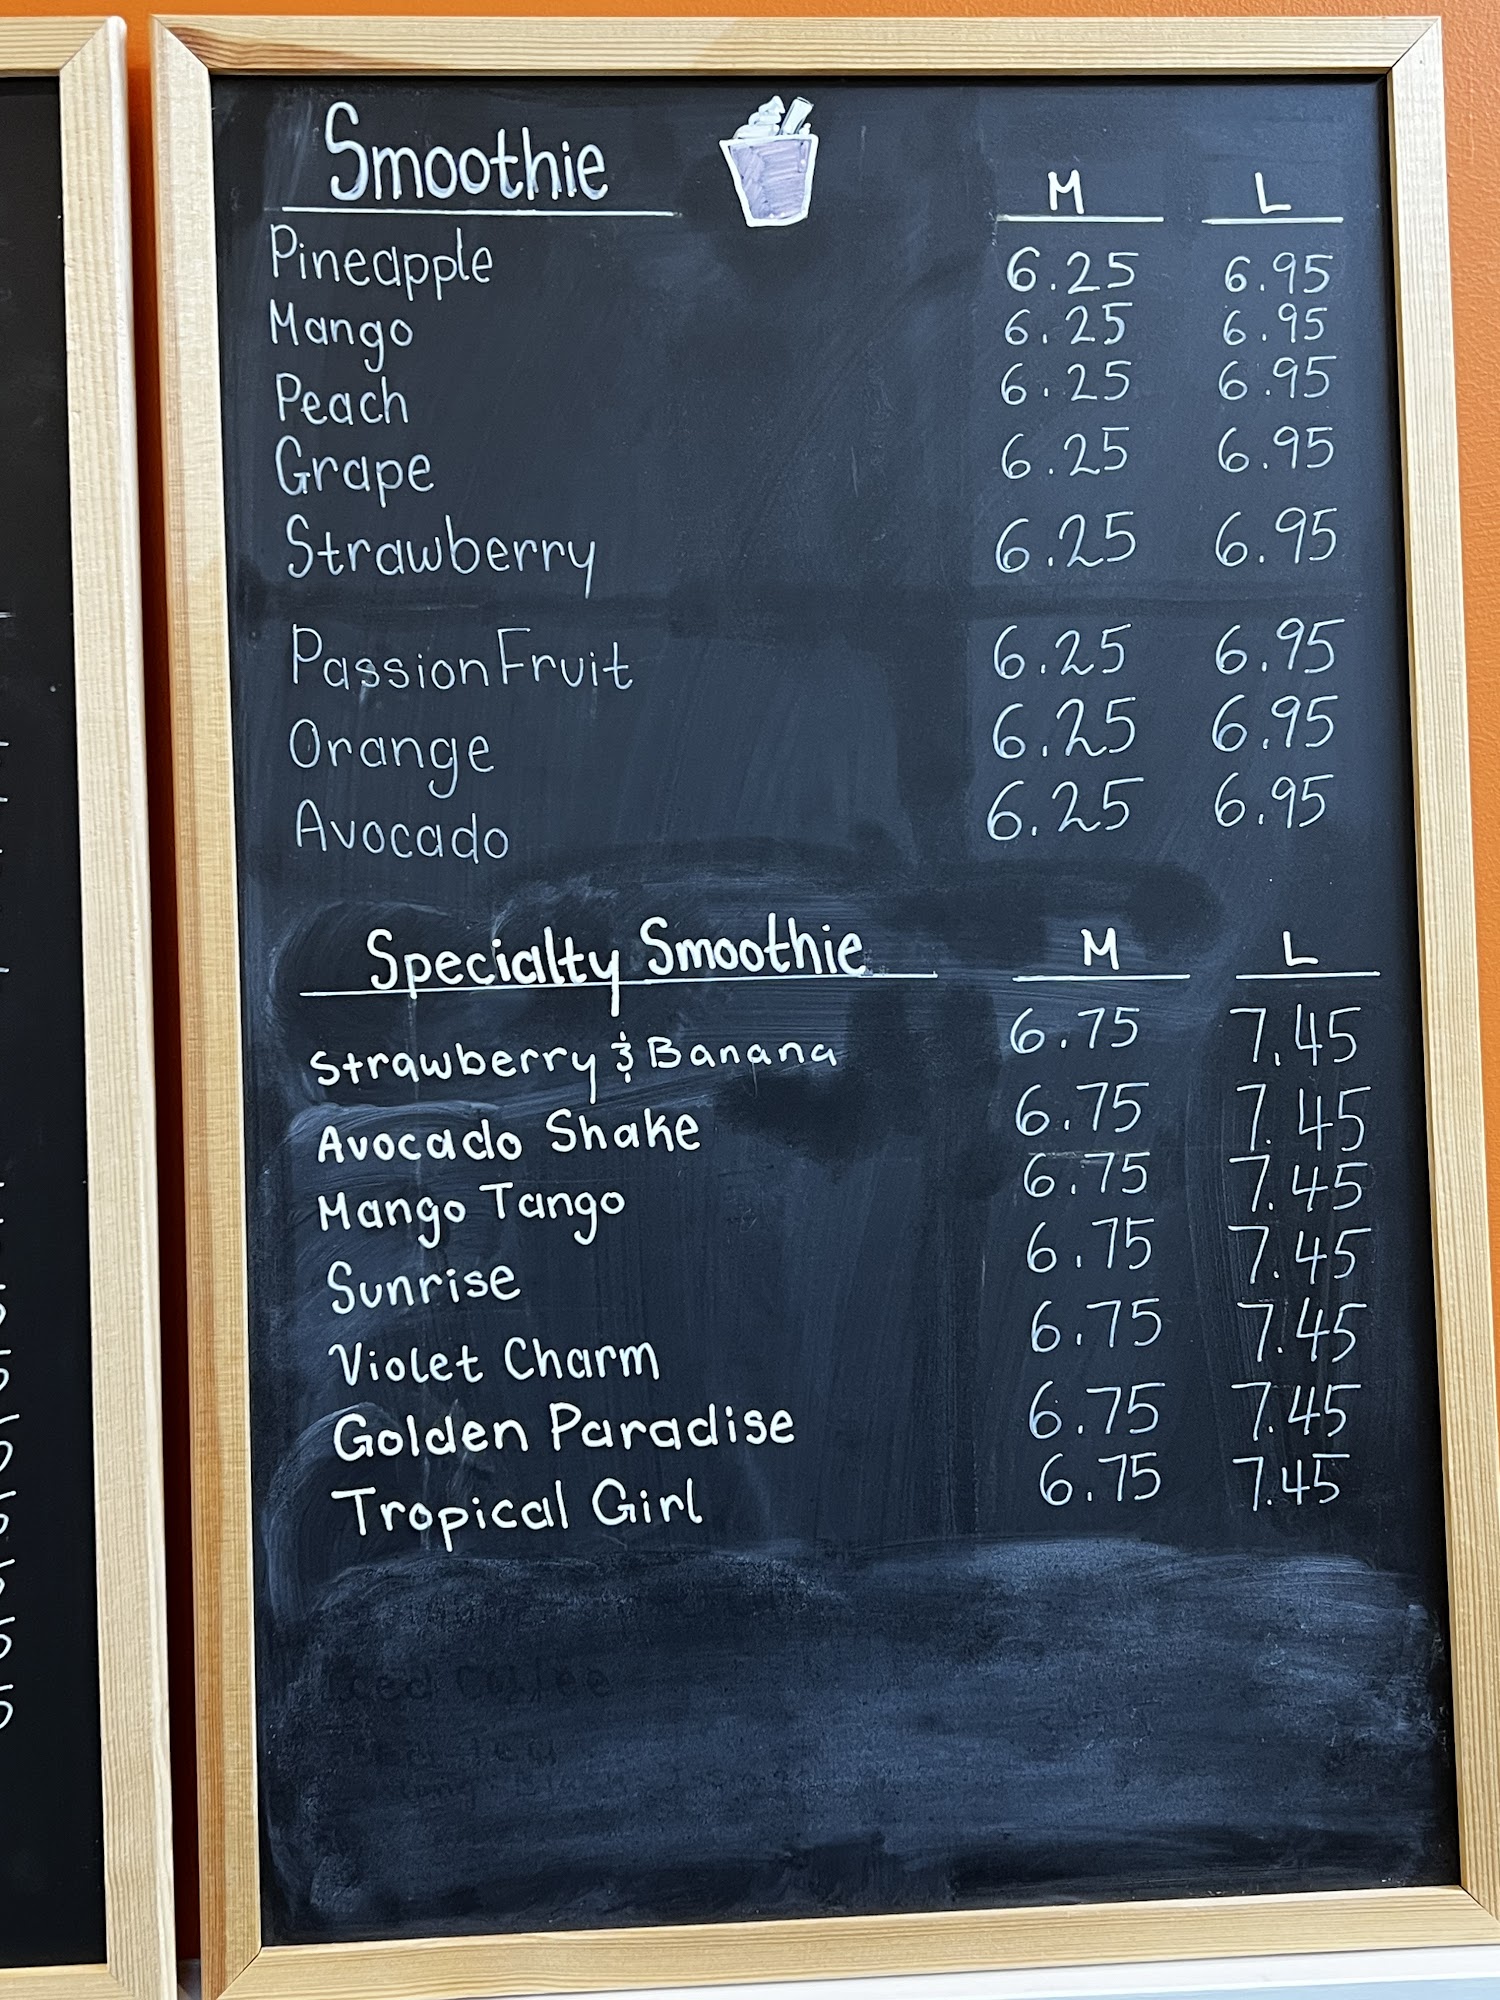 Smoothie M L
Pineapple 6.25 6.95
Mango 6.25 6.95
Peach 6.25 6.95
Grape 6.25 6.95
Strawberry 6.25 6.95
Passion Fruit 6.25 6.95
Orange 6.25 6.95
Avocado 6.25 6.95
Specialty Smoothie M L
Strawberry & Banana 6.75 7.45
Avocado Shake 6.75 7.45
Mango Tango 6.75 7.45
Sunrise 6.75 7.45
Violet Charm 6.75 7.45
Golden Paradise 6.75 7.45
Tropical Girl 6.75 7.45
Iced Coffee